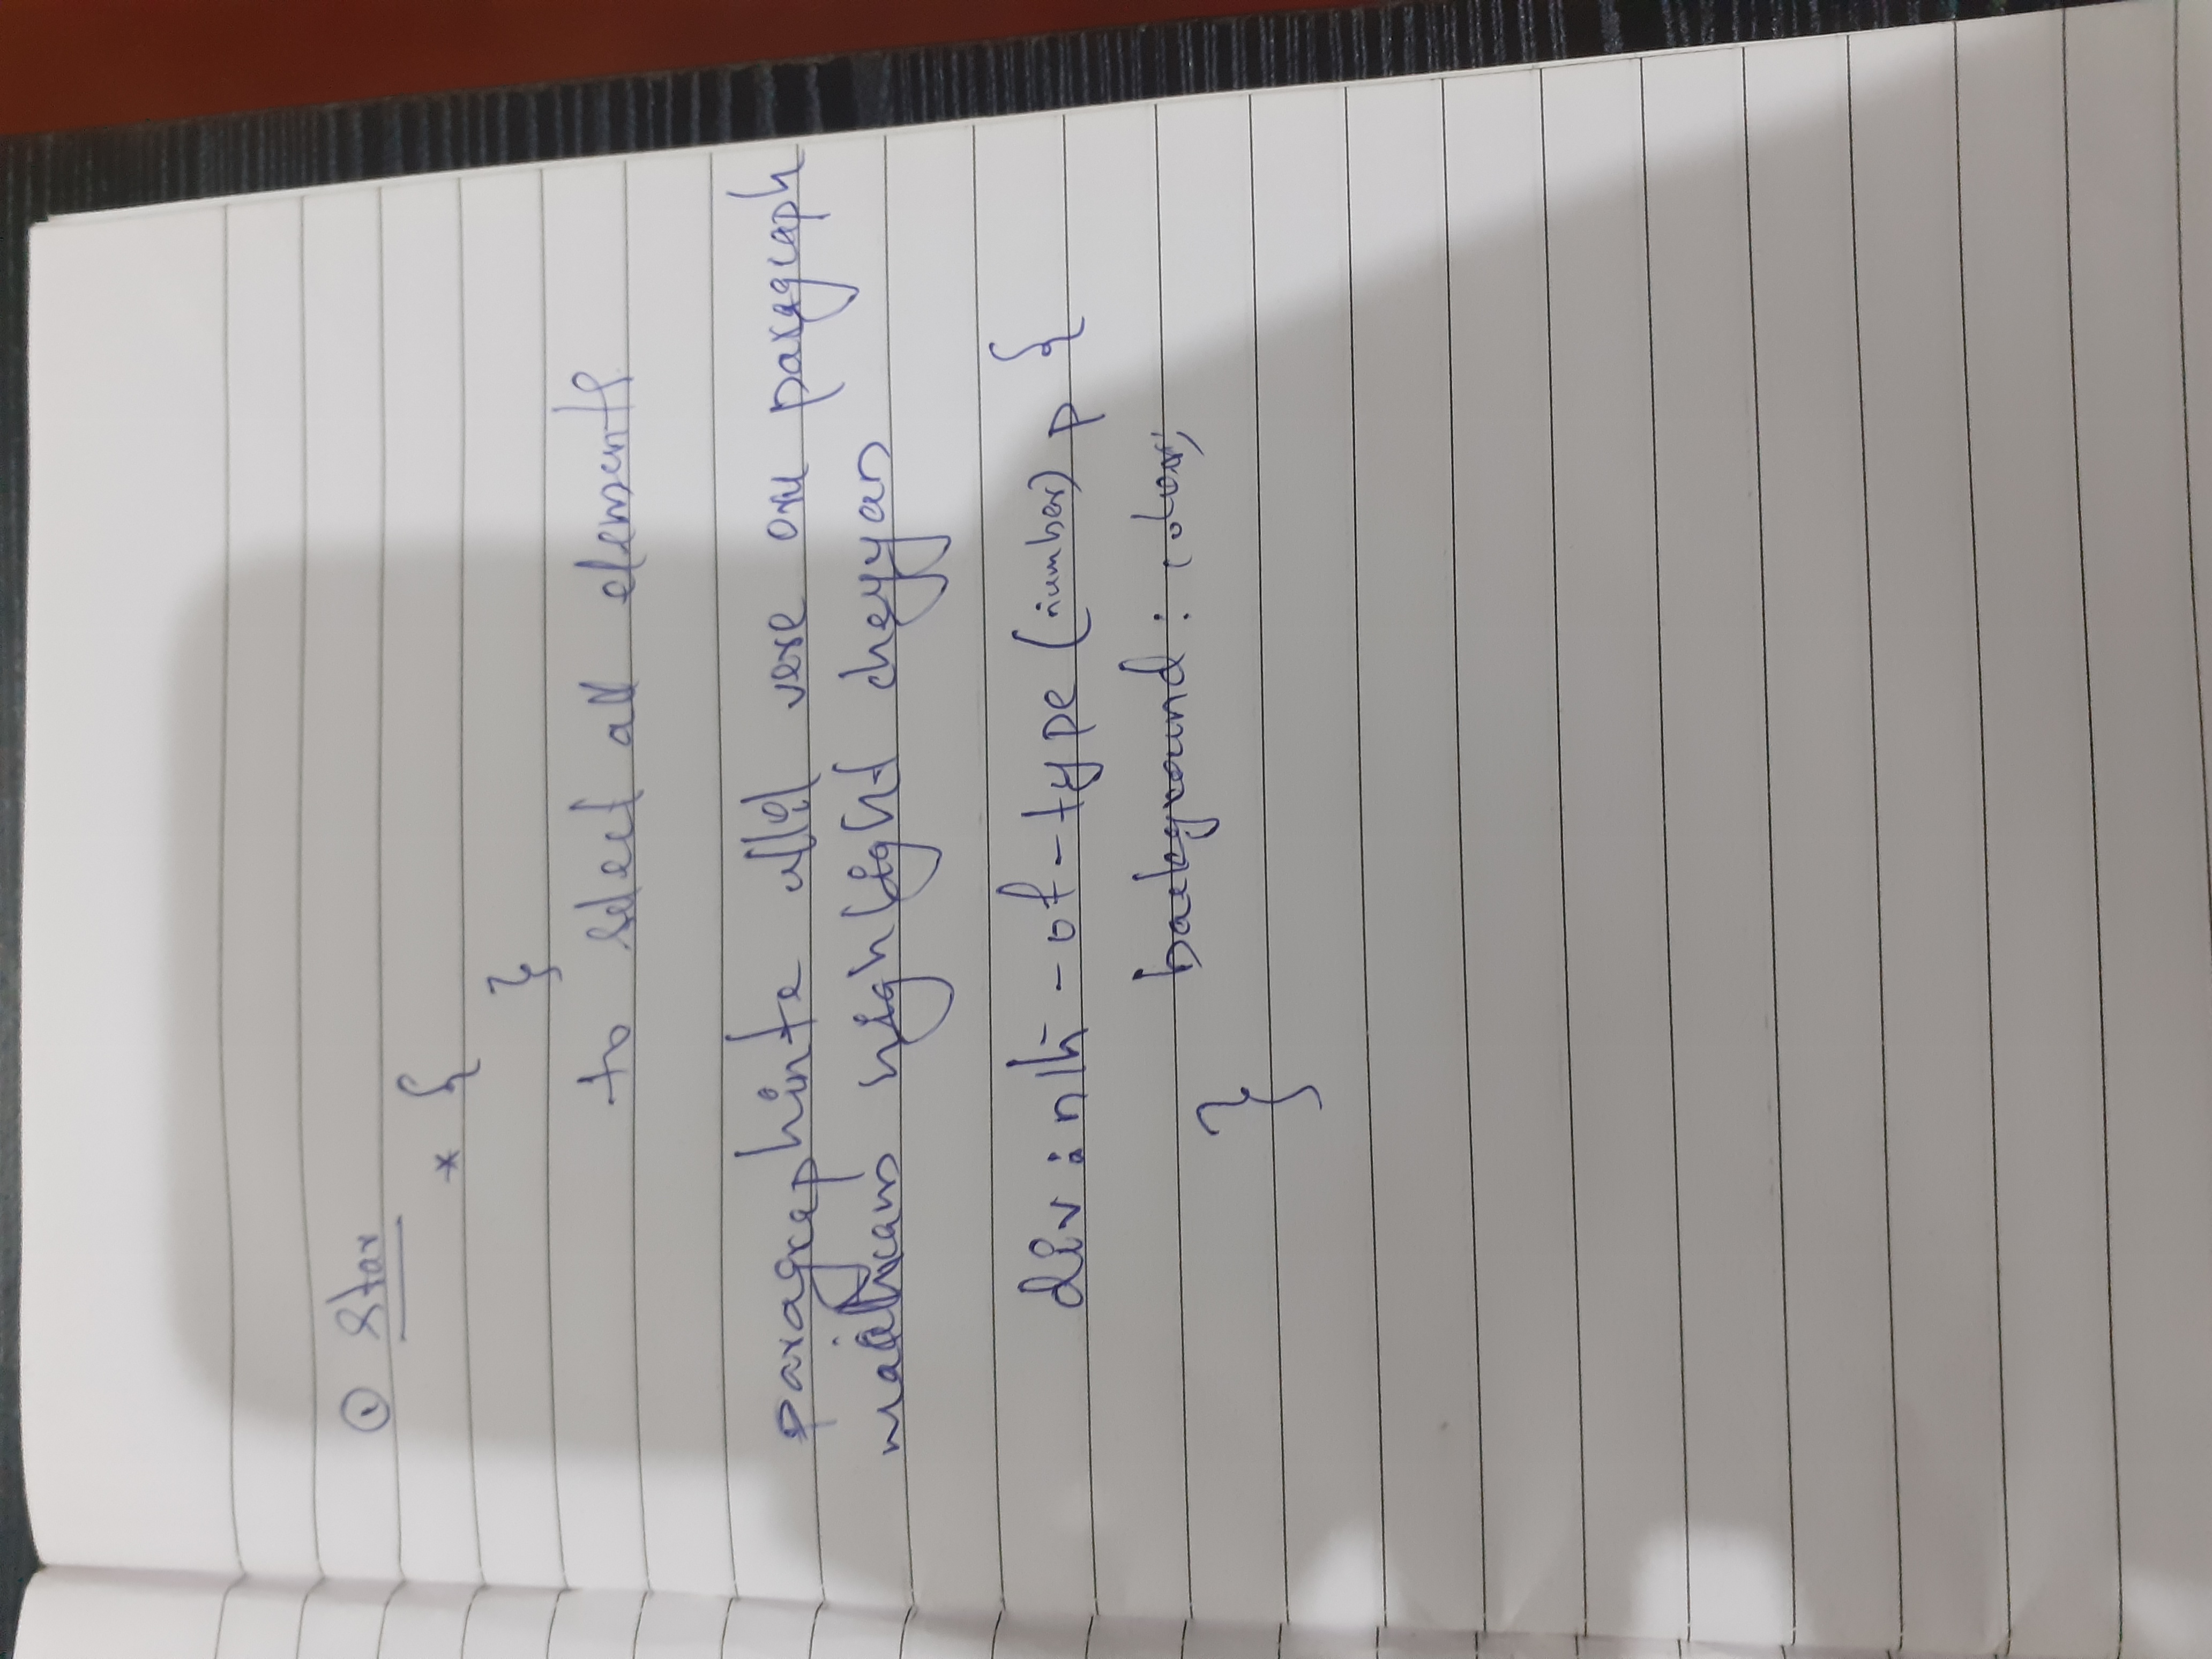 ① Star
* {
}
to select all elements
paragraphinte ullil vere oru paragraph
mathram highlight cheyyan
div : nth - of - type (number) p {
background : color;
}